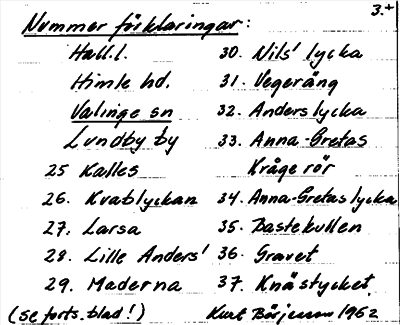 3.+
Nummer förklaringar:
Hall.l.
Himle hd.
Valinge sn
Lundby by
25 Kalles
26. Kvatlyckan
27. Larsa
28. Lille Anders'
29. Maderna
(se forts. blad!)
30. Nils' lycka
31. Vegeräng
32. Anders lycka
33. Anna-Gretas
Kråge rör
34. Anna-Gretas lycka
35. Bastekullen
36. Gravet
37. Knästycket.
Kurt Börjesson 1962